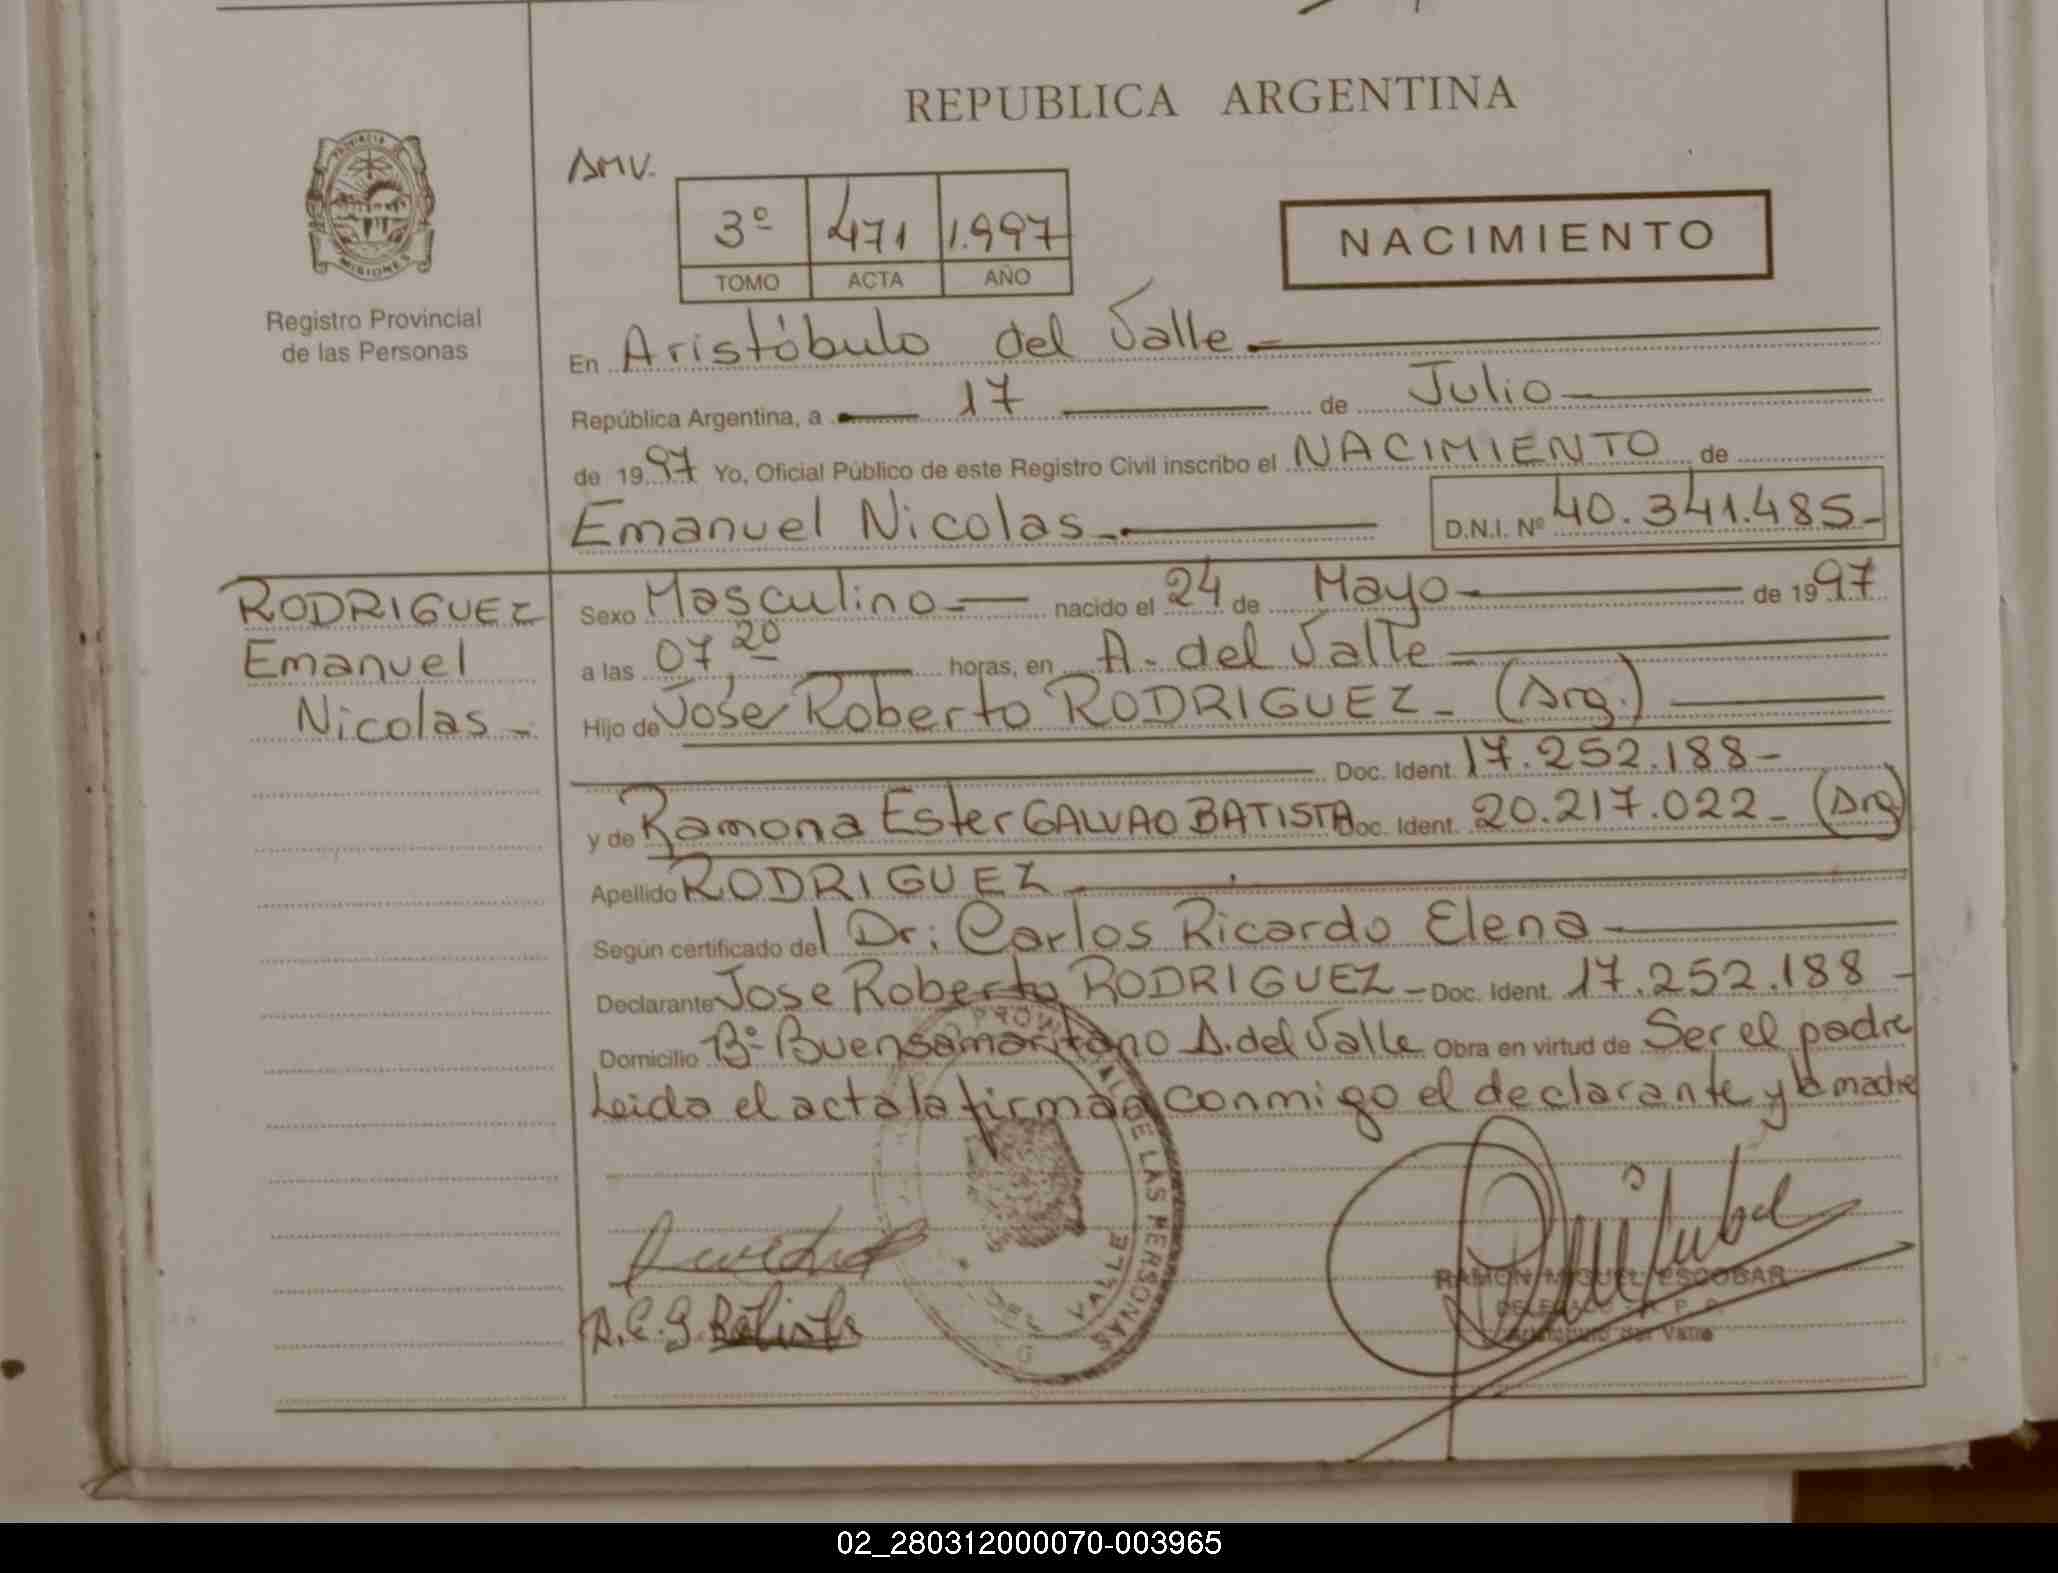 REPUBLICA ARGENTINA
AMV.
3º 471 1.997
TOMO ACTA AÑO
NACIMIENTO
PROVINCIA DE
MISIONES
Registro Provincial
de las Personas
En Aristóbulo del Valle
República Argentina, a 17 de Julio
de 1997 Yo, Oficial Público de este Registro Civil inscribo el NACIMIENTO de
Emanuel Nicolas D.N.I. Nº 40.341.485-
RODRIGUEZ
Emanuel
Nicolas-
Sexo Masculino nacido el 24 de Mayo de 1997
a las 07,20 horas, en A. del Valle
Hijo de Jose Roberto RODRIGUEZ- (Arg.)
Doc. Ident. 17.252.188-
y de Ramona Ester GALVAO BATISTA Doc. Ident. 20.217.022- (Arg)
Apellido RODRIGUEZ
Según certificado del Dr: Carlos Ricardo Elena
Declarante Jose Roberto RODRIGUEZ- Doc. Ident. 17.252.188-
Domicilio Bº Buensamaritano A. del Valle Obra en virtud de Ser el padre
Leida el acta la firman conmigo el declarante y la madre
DE LAS PERSONAS
VALLE
R.E.G. Batista
RAMON MIGUEL ESCOBAR
Aristobulo del Valle
02_280312000070-003965